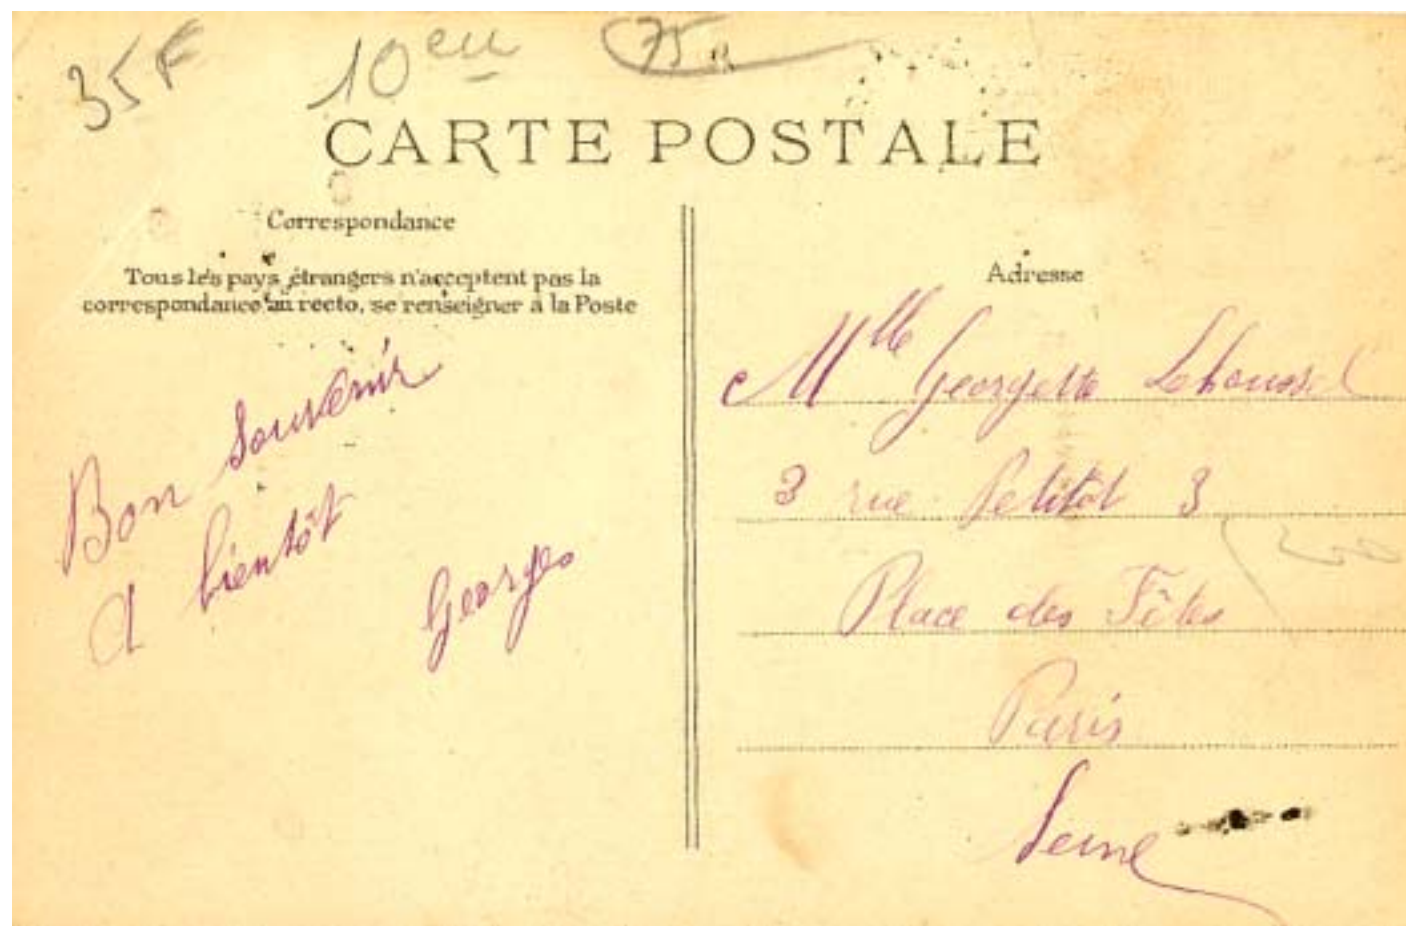 35F 10eu 75
CARTE POSTALE
Correspondance
Tous les pays étrangers n'acceptent pas la
correspondance au recto, se renseigner à la Poste
Bon souvenir
A bientôt
Georges
Adresse
Mlle Georgette Lehoussel
3 rue Petitot 3
Place des Fêtes
Paris
Seine